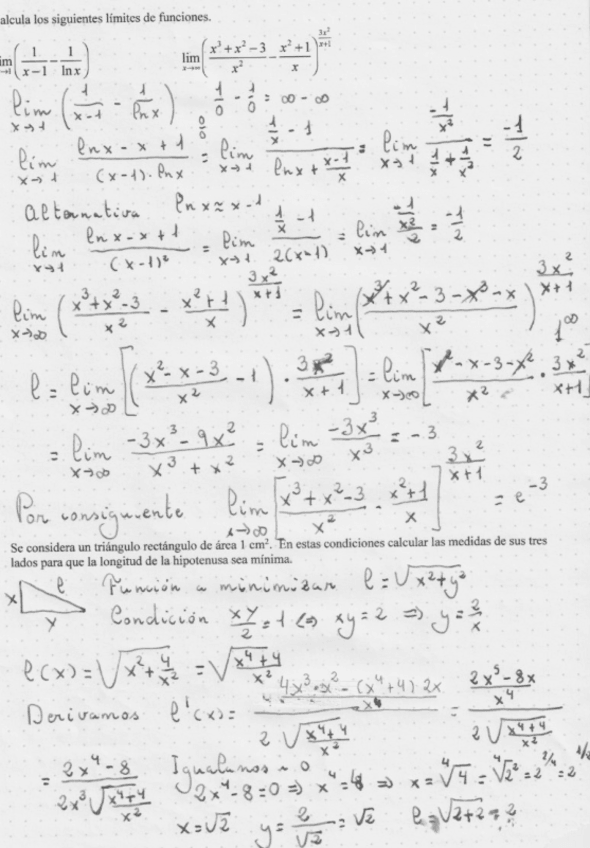 alcula los siguientes límites de funciones.
im x→1 (1/(x-1) - 1/ln x)    lim x→∞ ((x³+x²-3)/x² - (x²+1)/x)^(3x²/(x+1))
lim x→1 (1/(x-1) - 1/ln x)   1/0 - 1/0 = ∞ - ∞
lim x→1 (ln x - x + 1)/((x-1)·ln x) =(0/0) lim x→1 (1/x - 1)/(ln x + (x-1)/x) = lim x→1 (-1/x²)/(1/x + 1/x²) = -1/2
alternativa   ln x ≈ x-1
lim x→1 (ln x - x + 1)/(x-1)² = lim x→1 (1/x - 1)/(2(x-1)) = lim x→1 (-1/x²)/2 = -1/2
lim x→∞ ((x³+x²-3)/x² - (x²+1)/x)^(3x²/(x+1)) = lim x→1 ((x³+x²-3-x³-x)/x²)^(3x²/(x+1))   1^∞
l = lim x→∞ [((x²-x-3)/x² - 1)·3x²/(x+1)] = lim x→∞ [(x²-x-3-x²)/x² · 3x²/(x+1)]
= lim x→∞ (-3x³-9x²)/(x³+x²) = lim x→∞ -3x³/x³ = -3
Por consiguiente   lim x→∞ [(x³+x²-3)/x² - (x²+1)/x]^(3x²/(x+1)) = e^-3
Se considera un triángulo rectángulo de área 1 cm². En estas condiciones calcular las medidas de sus tres
lados para que la longitud de la hipotenusa sea mínima.
x   l   y   Función a minimizar   l = √(x²+y²)
Condición   xy/2 = 1 ⇔ xy = 2 ⇒ y = 2/x
l(x) = √(x² + 4/x²) = √((x⁴+4)/x²)
Derivamos   l'(x) = ((4x³·x² - (x⁴+4)·2x)/x⁴)/(2√((x⁴+4)/x²)) = ((2x⁵-8x)/x⁴)/(2√((x⁴+4)/x²))
= (2x⁴-8)/(2x³√((x⁴+4)/x²))   Igualamos a 0   2x⁴-8=0 ⇒ x⁴=4 ⇒ x = ⁴√4 = ⁴√2² = 2^(2/4) = 2^(1/2)
x=√2   y = 2/√2 = √2   l = √(2+2) = 2